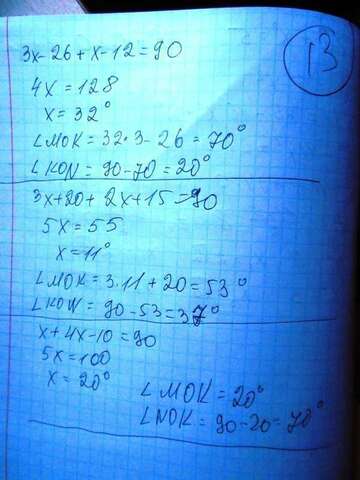 13
3x-26+x-12=90
4x=128
x=32°
∠MOK=32·3-26=70°
∠KON=90-70=20°
3x+20+2x+15=90
5x=55
x=11°
∠MOK=3·11+20=53°
∠KON=90-53=37°
x+4x-10=90
5x=100
x=20°
∠MOK=20°
∠NOK=90-20=70°